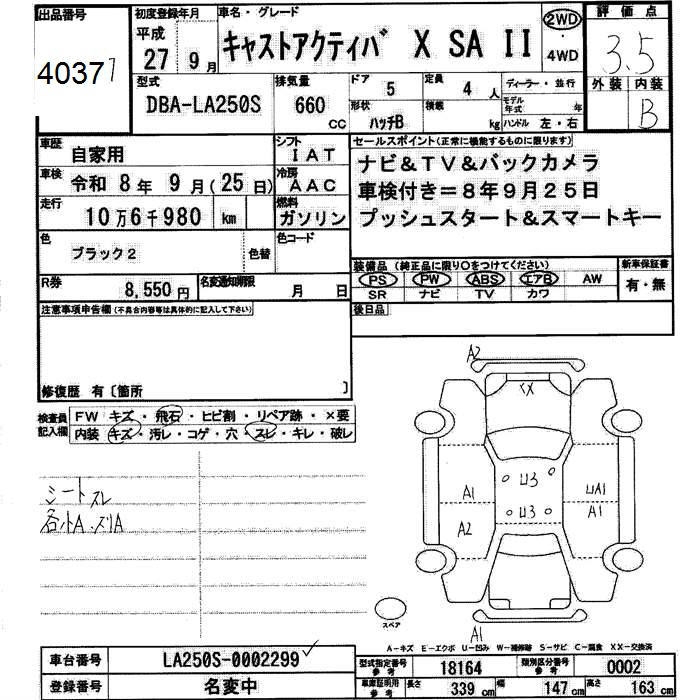 出品番号
40377
初度登録年月
平成
27 9月
車名・グレード
キャストアクティバ X SA II
2WD
・
4WD
評価点
3.5
外装 内装
B
型式
DBA-LA250S
排気量
660
CC
ドア 5
定員 4 人
形状 ハッチB
積載 kg
ディーラー・並行
モデル年式 年
ハンドル 左・右
車歴 自家用
シフト IAT
車検 令和 8年 9月(25日)
冷房 AAC
走行 10万6千980 km
燃料 ガソリン
色 ブラック2 色替
色コード
R券 8,550円
名変通知期限 月 日
セールスポイント(正常に機能するものに限ります)
ナビ&TV&バックカメラ
車検付き=8年9月25日
プッシュスタート&スマートキー
装備品(純正品に限り○をつけてください)
新車保証書
PS PW ABS エアB AW
SR ナビ TV カワ
有・無
後日品
注意事項申告欄(不具合内容等は具体的に記入して下さい)
修復歴 有〔箇所 〕
検査員記入欄
FW キズ・飛石・ヒビ割・リペア跡・×要
内装 キズ・汚レ・コゲ・穴・スレ・キレ・破レ
シートスレ
各小A.スリA
A2
XX
U3
U3
A1
A2
UA1
A1
A1
スペア
A-キズ E-エクボ U-凹み W-補修跡 S-サビ C-腐食 XX-交換済
車台番号 LA250S-0002299
登録番号 名変中
型式指定番号参考 18164
類別区分番号参考 0002
車庫証明用参考 長さ 339cm 幅 147cm 高さ 163cm